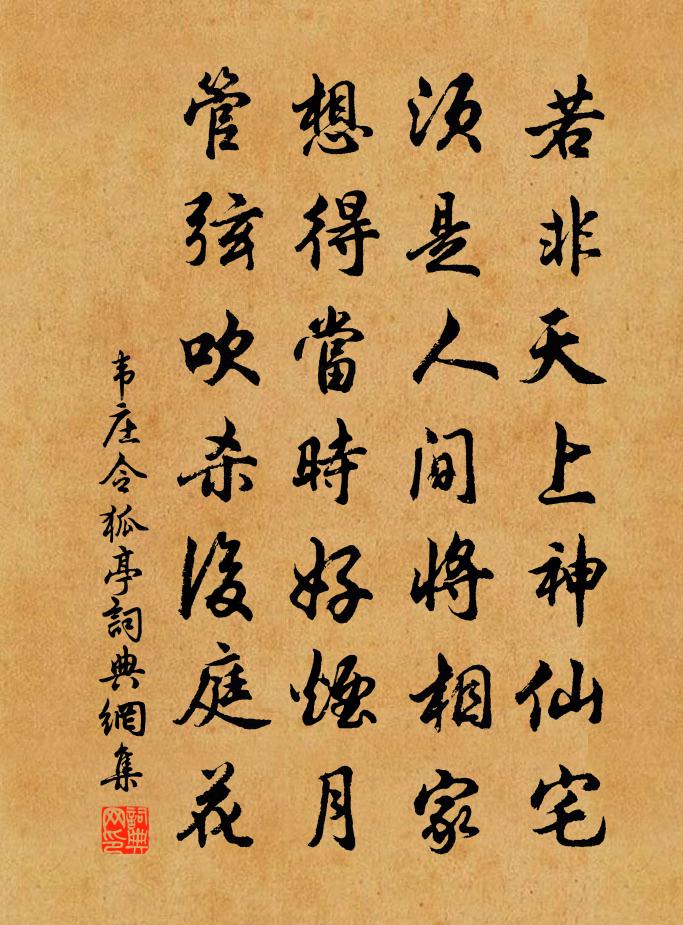 若非天上神仙宅
須是人間將相家
想得當時好煙月
管弦吹杀後庭花
韦庄令狐亭詞典網集
詞典网印